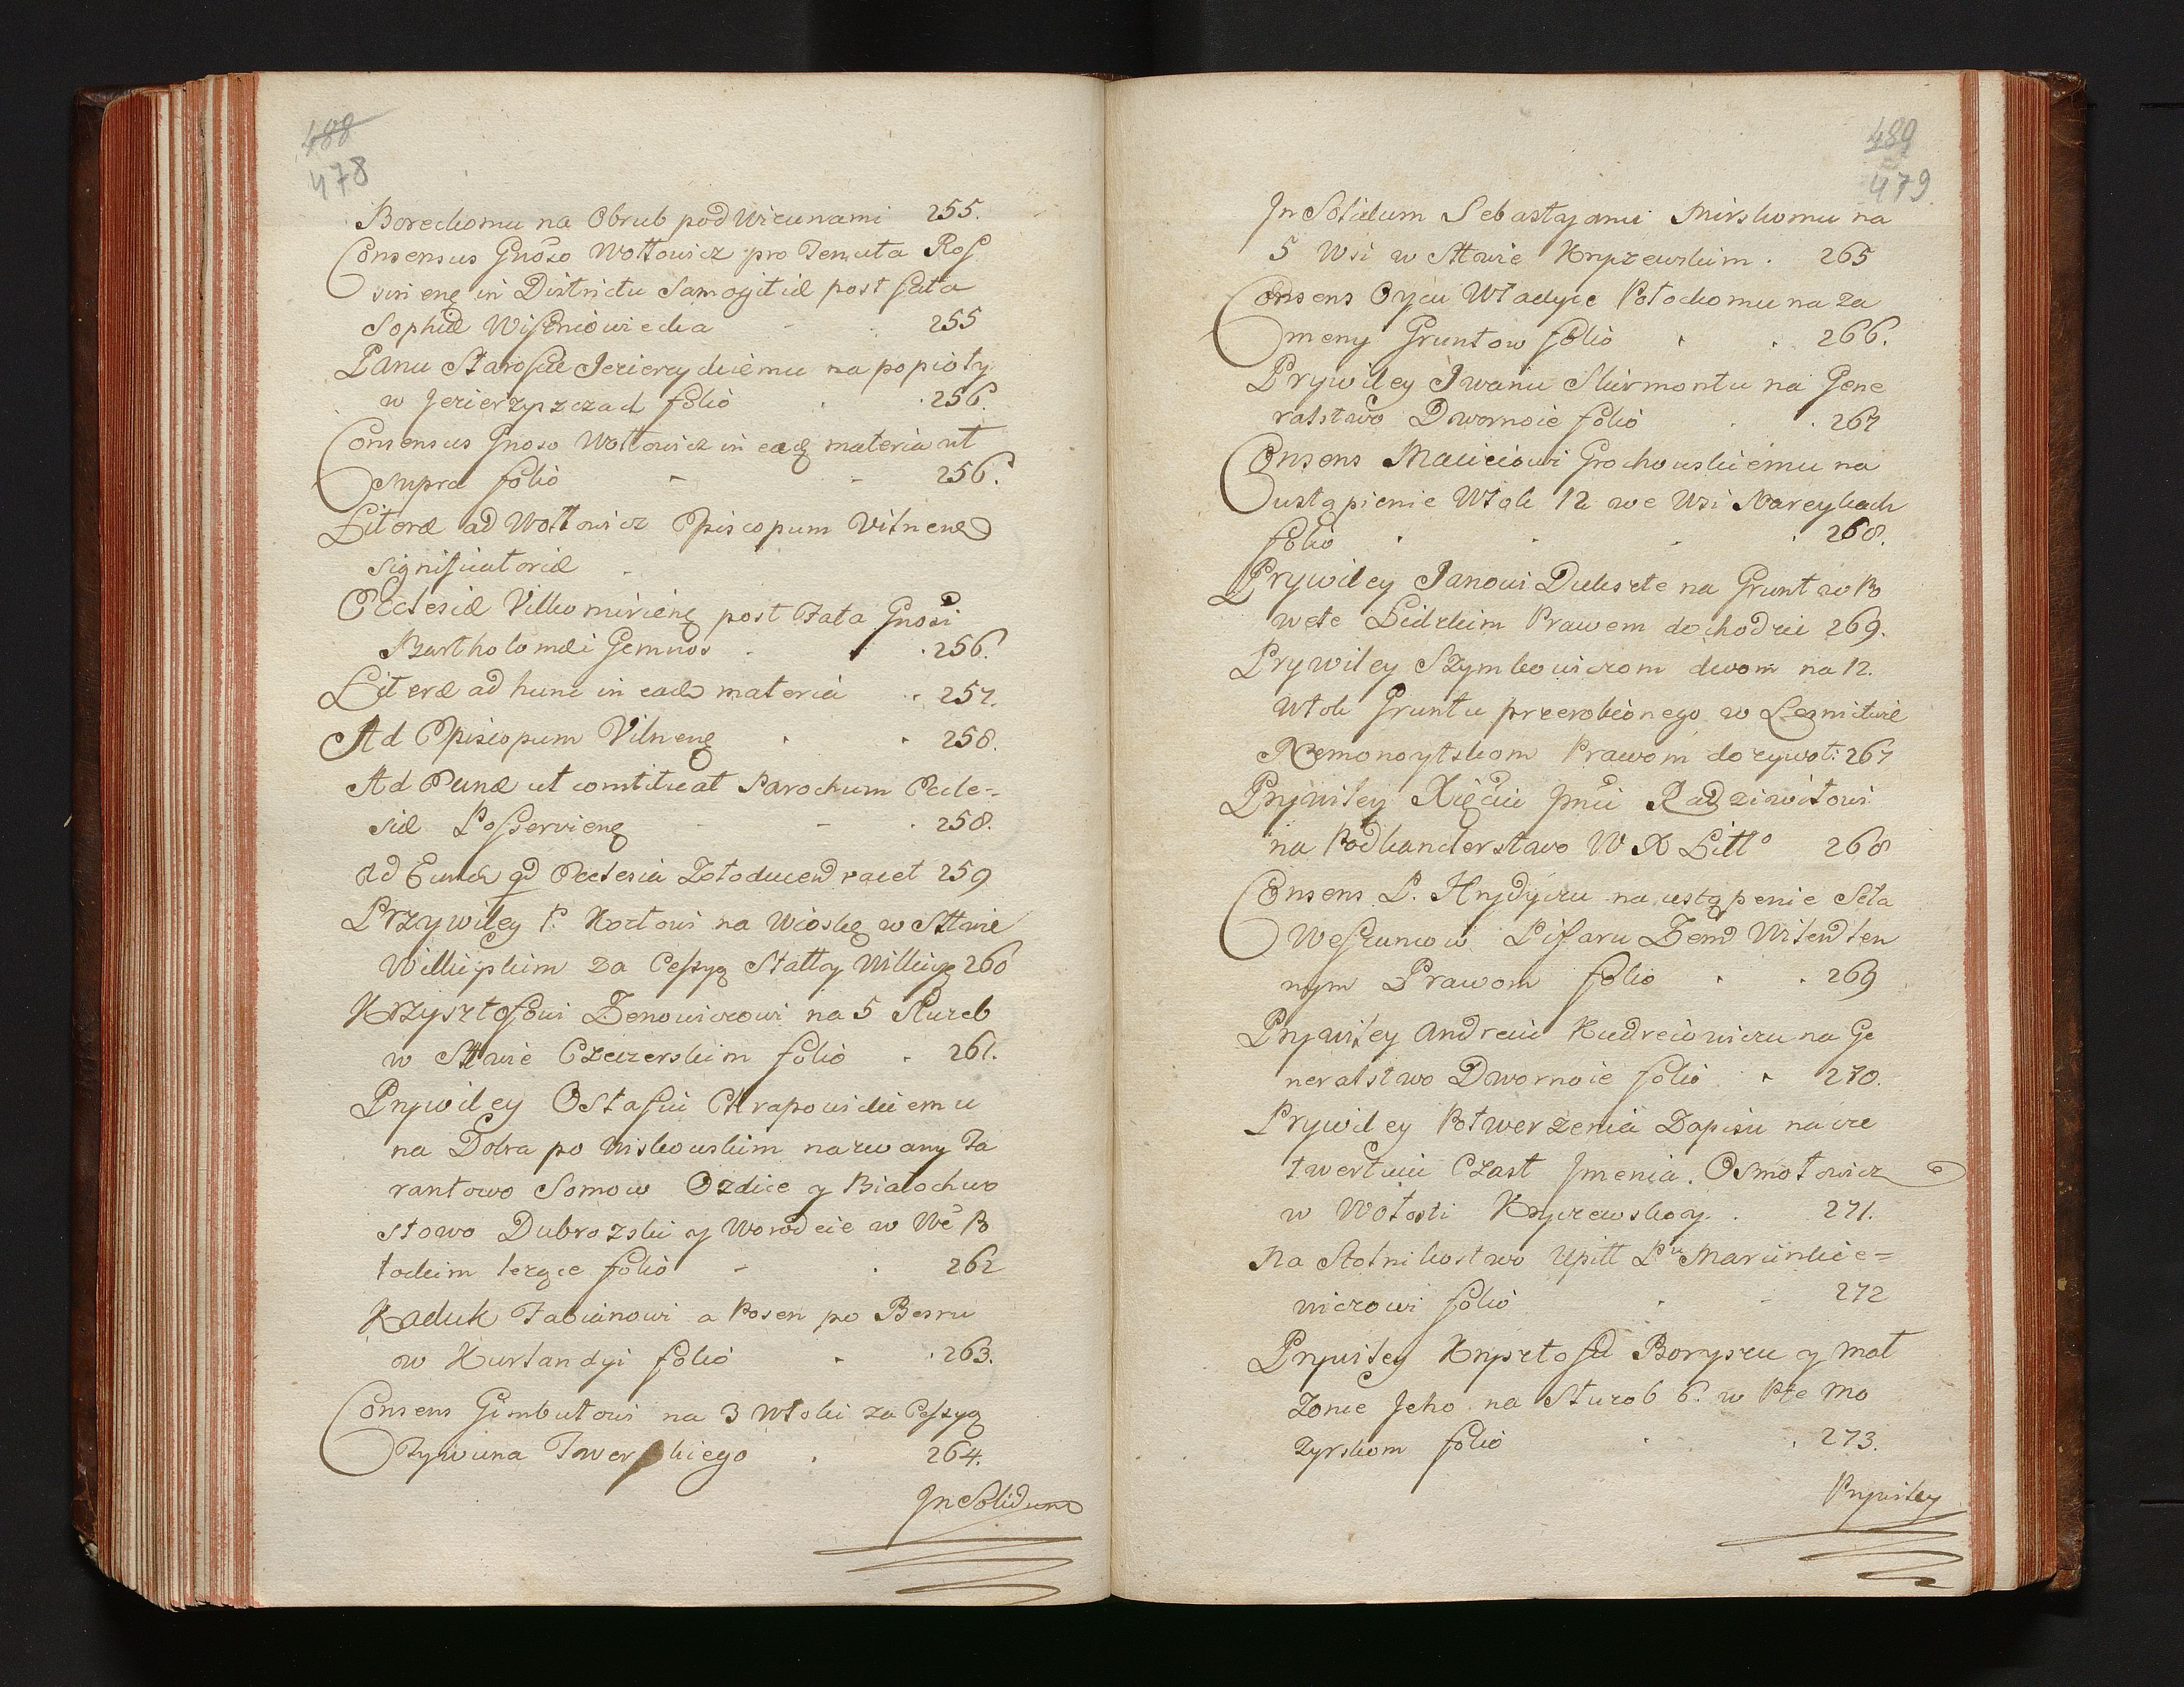 488
478
Boreckomu na Obrub pod Wieunami 255.
Consensus Gnoso Wołłowicz pro Tenuta Ros
sieneӡ in Districtu Samogitiæ post fata
Sophiæ Wiszniowiecka 255
Panu Staroscie Jezierzyckiemu na popioły
w Jezierzyszczach folio 256.
Consensus Gnoso Wołłowicz in eadӡ materia ut
supra folio 256.
Literæ ad Wołłowicz Episcopum Vilnen
significatoriæ
Ecclesiæ Vilkomirienӡ post Fata Gnosi
Bartholomæi Gemnos 256.
Literæ ad hunc in eadem materia 257.
Ad Episcopum Vilnenӡ 258.
Ad Eund ut constituat Parochum Eccle-
siæ Posservienӡ 258.
Ad Eund qd Ecclesia Zoloducen vacet 259
Przywiley P. Kozłowi na Wioskę w Sttwie
Wilkiyskim za Cessyą Statty Wilkiyӡ 260
Krzysztofowi Zenowiczowi na 5 Służeb
w Sttwie Czeczerskim folio 261.
Prywiley Ostafiu Chrapowickiemu
na Dobra po Niskowskim nazwany Ta
rantowo Somow Ozdice y Białochwo
stowo Dubrozski y Worodcie w Wē Po
łockim leżące folio 262
Kaduk Fabianowi a Kosen po Besru
w Kurlandyi folio 263.
Consens Gimbutowi na 3 Włoki za Cessyą
Tywuna Twerskiego 264.
In Solidum
489
479
In Solidum Sebastyanu Mirskomu na
5 Wsi w Sttwie Kryczewskim. 265
Consens Oycu Władyce Połockomu na za
meny Gruntow folio 266.
Prywiley Iwanu Skirmontu na Gene
ralstwo Dwornoie folio 267
Consens Maciejowi Grochowskiemu na
ustąpienie Włok 12 we Wsi Nareykach
folio 268.
Prywiley Janowi Dulszte na Grunt w Po
wete Lidzkim Prawem dochodzi 269.
Prywiley Szymkowiczom dwom na 12.
Włok Gruntu przerobionego w Lesnictwie
Niemonoytskom Prawom dozywot: 267
Prywiley Xięciu Jmci Radziwiłowi
na Podkanclerstwo W X Litto 268
Consens P. Hrydyczu na ustąpenie Sela
Weszunow Pisaru Zemd Witend len
nym Prawom folio 269
Prywiley Andreiu Kudreiowiczu na Ge
neralstwo Dwornoie folio 270.
Prywiley Potwerzenia Zapisu na cze
twertuiu Czast Jmenia Osmołowicz
w Wołosti Kryczewskoy. 271.
Na Stolnikostwo Upitt Pu Marcinkie-
wiczowi folio 272
Prywiley Krysztofu Boryszu y Mał
żonie Jeho na Służob 6. w Pte Mo
zyrskom folio 273.
Prywiley